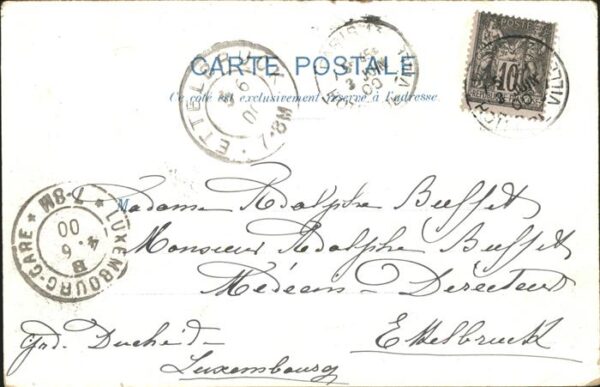 CARTE POSTALE
Ce côté est exclusivement réservé à l'adresse
ETTELBRUCK
7-8M
10
REPUBLIQUE FRANÇAISE
LUXEMBOURG-GARE
7-8M
4.6
00
B
Madame Adolphe Buffet
Monsieur Adolphe Buffet
Médecin-Directeur
Ettelbruck
Grd. Duché de
Luxembourg